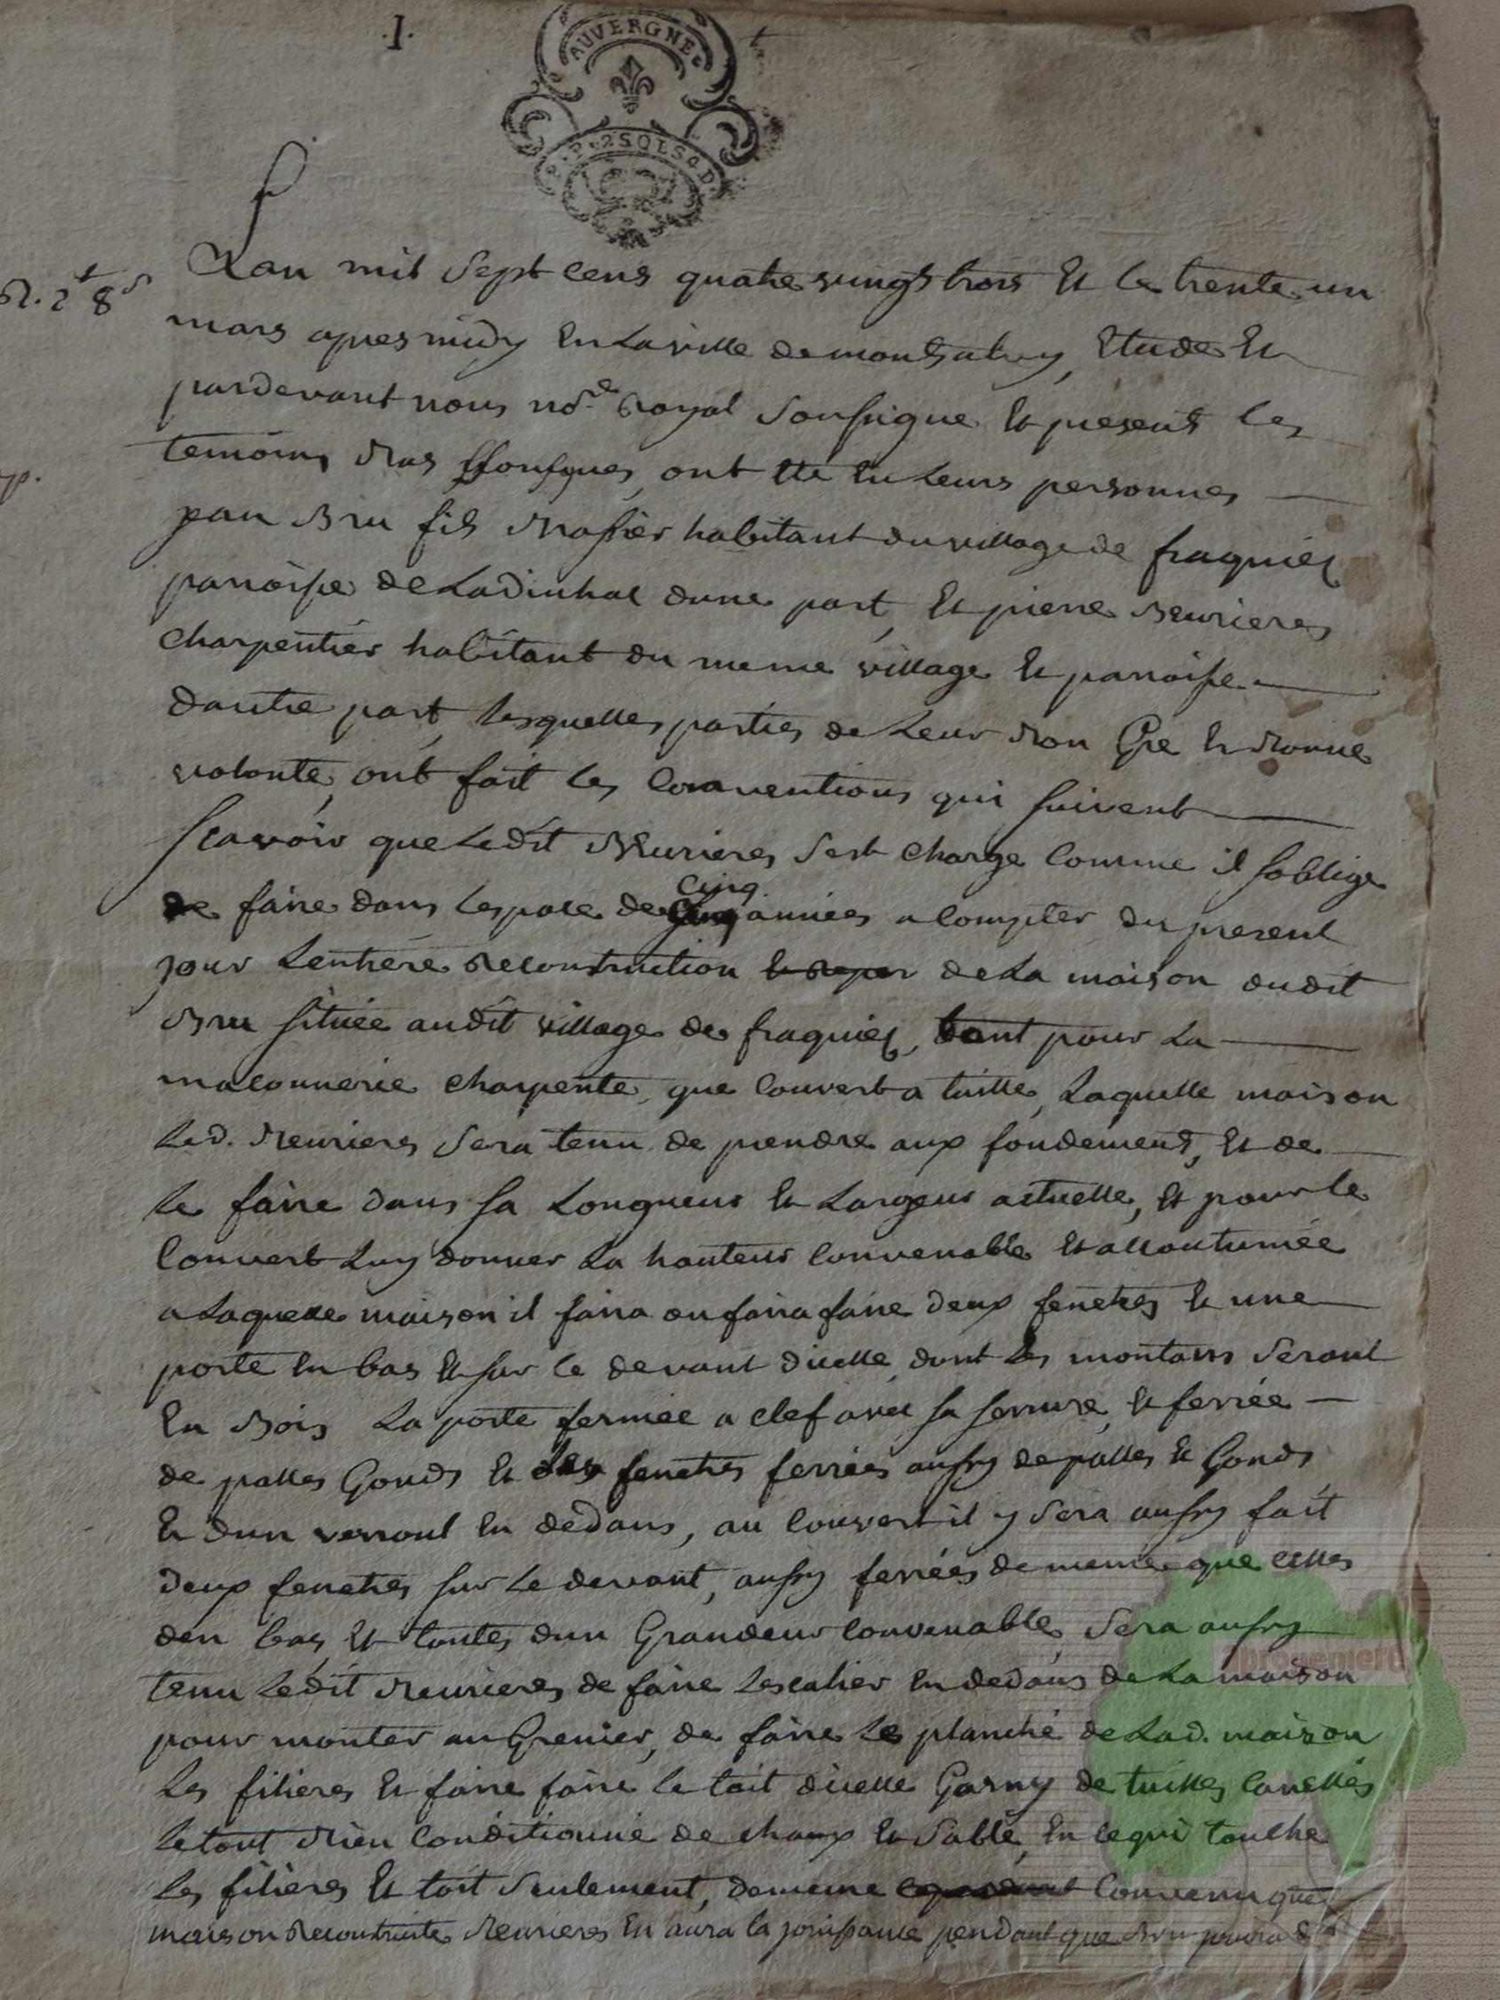 .1.
AUVERGNE
2 SOLS 4 D.
Lan mil sept cens quatre vingts trois et le trente un
R. 2 8 s
mars apres midy en la ville de montsalvy, Etude et
pardevant nous no.re Royal soussigne et présents les
temoins bas soussignes, ont été en leurs personnes
jean Bru fils brassier habitant du village de fraquier
paroisse de Ladinhac dune part, et pierre Meurieres
charpentier habitant du meme village et paroisse
dautre part, lesquelles parties de leur bon Gré et bonne
volonté, ont fait les Conventions qui suivent
scavoir que ledit Meurieres sest chargé comme il soblige
de faire dans lespace de cinq années a compter du present
jour Lentiere Reconstruction de la maison dudit
Bru située audit village de fraquier, tant pour la
maconnerie charpente, que couvert a tuille, Laquelle maison
led. Meurieres sera tenu de prendre aux fondements, et de
le faire dans sa Longueur et Largeur actuelle, et pour le
couvert Luy donner la hauteur convenable et accoutumée
a laquelle maison il faira ou faira faire deux fenetres et une
porte en bas et sur le devant dicelle, dont les montans seront
en Bois La porte fermée a clef avec sa serrure, et ferrée
de palles Gonds et les fenetres ferrées aussy de palles et Gonds
et dun verroul en dedans, au couvert il y sera aussy fait
deux fenetres sur le devant, aussy ferrées de meme que celles
den bas, et toutes dun Grandeur convenable, sera aussy
tenu ledit Meurieres de faire Lescalier en dedans de la maison
pour monter au Grenier, de faire le planché de lad. maison
Les filieres et faire faire le toit dicelle Garny de tuilles canelles
le tout bien conditionné de chaux et sable, en ce qui touche
les filieres et toit seulement, demeure convenu que
maison Reconstruite Meurieres en aura la jouissance pendant que Bru pourra